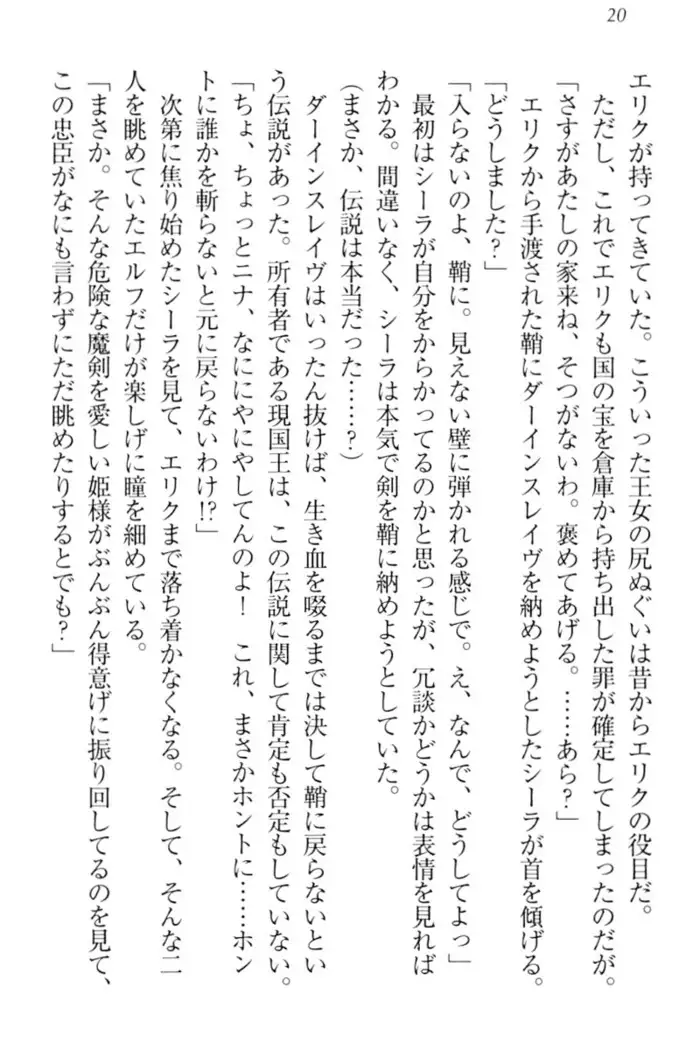 20
エリクが持ってきていた。こういった王女の尻ぬぐいは昔からエリクの役目だ。
ただし、これでエリクも国の宝を倉庫から持ち出した罪が確定してしまったのだが。
「さすがあたしの家来ね、そつがないわ。褒めてあげる。……あら?」
エリクから手渡された鞘にダーインスレイヴを納めようとしたシーラが首を傾げる。
「どうしました?」
「入らないのよ、鞘に。見えない壁に弾かれる感じで。え、なんで、どうしてよっ」
最初はシーラが自分をからかってるのかと思ったが、冗談かどうかは表情を見れば
わかる。間違いなく、シーラは本気で剣を鞘に納めようとしていた。
(まさか、伝説は本当だった……?)
ダーインスレイヴはいったん抜けば、生き血を啜るまでは決して鞘に戻らないとい
う伝説があった。所有者である現国王は、この伝説に関して肯定も否定もしていない。
「ちょ、ちょっとニナ、なにニやにやしてんのよ! これ、まさかホントに……ホン
トに誰かを斬らないと元に戻らないわけ!?」
次第に焦り始めたシーラを見て、エリクまで落ち着かなくなる。そして、そんな二
人を眺めていたエルフだけが楽しげに瞳を細めている。
「まさか。そんな危険な魔剣を愛しい姫様がぶんぶん得意げに振り回してるのを見て、
この忠臣がなにも言わずにただ眺めたりするとでも?」